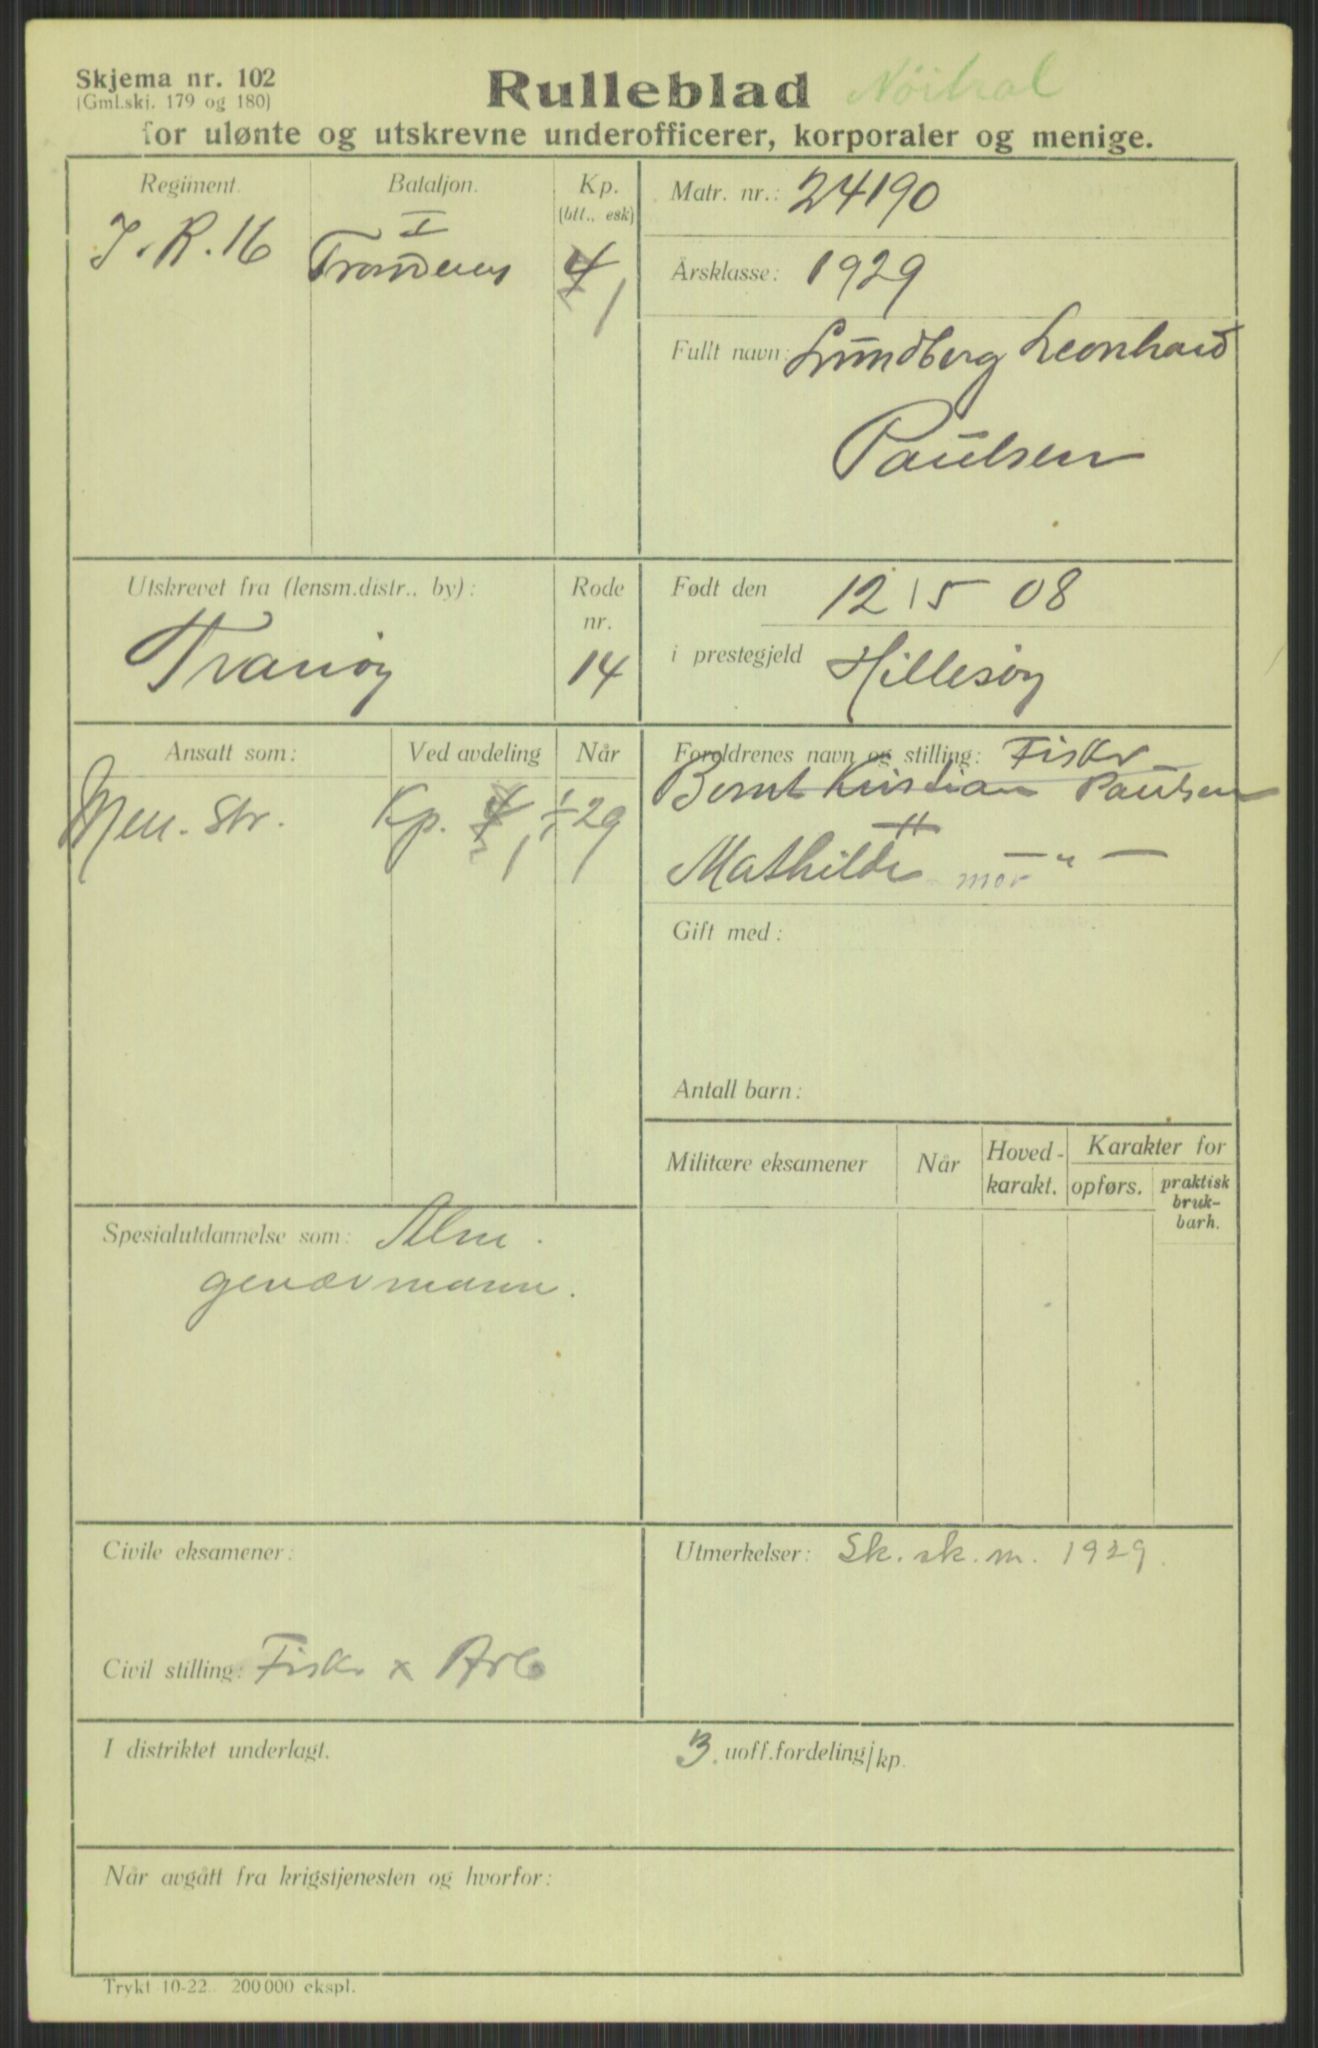 Skjema nr. 102
(Gml.skj. 179 og 180)
Rulleblad Nöitral
for ulønte og utskrevne underofficerer, korporaler og menige.
Regiment. Bataljon. Kp.
(btl., esk)
J. R. 16 I
Trondenes 4 1
Matr. nr.: 24190
Årsklasse: 1929
Fullt navn: Lundberg Leonhard
Paulsen
Utskrevet fra (lensm.distr., by): Rode
nr.
Tranøy 14
Født den 12 15 08
i prestegjeld Hillesøy
Ansatt som: Ved avdeling Når
Men. str. Kp. 4 1 1/1 29
Foreldrenes navn og stilling: Fiskr
Bernt Kristian Paulsen
Mathilde mor — " —
Gift med:
Antall barn:
Militære eksamener Når Hoved-
karakt. Karakter for
opførs. praktisk
bruk-
barh.
Spesialutdannelse som: Alm.
geværmann.
Civile eksamener:
Civil stilling: Fiskr x Arb
Utmerkelser: Sk. sk. m. 1929.
I distriktet underlagt.
3. uoff.fordeling/kp.
Når avgått fra krigstjenesten og hvorfor:
Trykt 10-22. 200 000 ekspl.